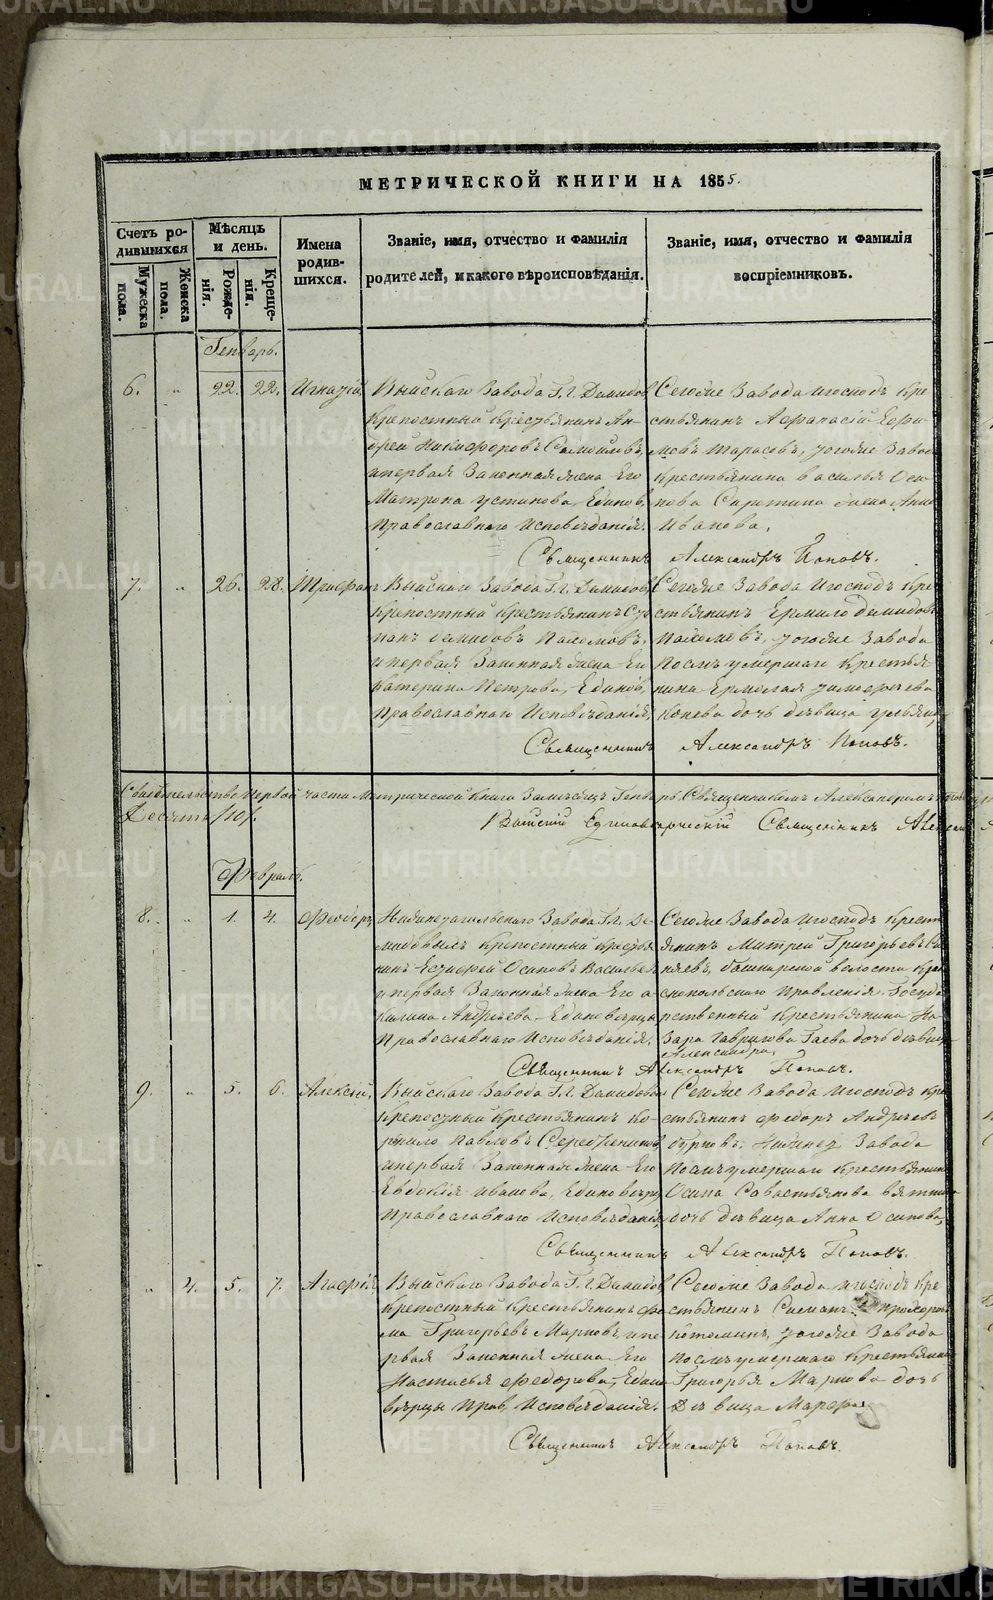 METRIKI.GASO-URAL.RU
МЕТРИЧЕСКОЙ КНИГИ НА 1855.
Счетъ родившихся
Мужеска пола.
Женска пола.
Мѣсяцъ и день.
Рожденія.
Крещенія.
Имена родившихся.
Званіе, имя, отчество и фамилія
родителей, и какого вѣроисповѣданія.
Званіе, имя, отчество и фамилія
воспріемниковъ.
Генварь.
6. „ 22. 22. Игнатій
Выйскаго Завода Г.г. Демидов
Крепостный Крестьянинъ Ан-
дрей Никифоровъ Самойловъ,
и первая Законная жена Его
Матрона Устинова, Единов.
Православнаго Исповѣданія.
Сегоже Завода и господъ Кре
стьянинъ Афанасій Ефи-
мовъ Тарасовъ, тогоже Завода
Крестьянина Василья Оси-
пова жена Анна
Иванова.
Священникъ Александръ Поповъ.
7. „ 26. 28. Трифонъ
Выйскаго Завода Г.г. Демидов
Крепостный Крестьянинъ Сте
панъ Демидовъ Пахомовъ,
и первая Законная жена Его
Катерина Петрова, Единов.
Православнаго Исповѣданія,
Сегоже Завода и господъ Кре
стьянинъ Ермило Демидовъ
Пахомовъ, тогоже Завода
Послѣ умершаго Крестья
нина Ермолая Тимофеева
Конева дочь дѣвица Ульяна,
Священникъ Александръ Поповъ.
Свидѣтельство Первой части Метрической Книги За мѣсяцъ Генварь Священникомъ Александромъ
Десять /10/.
Выйскій Единовѣрческій Священникъ
Февраль.
8. „ 1. 4. Феодоръ
Нижнетагильскаго Завода Г.г. Де
мидовыхъ Крепостный Крестья
нинъ Естифей Осиповъ Васильев
и первая Законная жена Его А
килина Андреева Единоверцы
Православнаго Исповѣданія.
Сегоже Завода и господъ Крест
янинъ Митрей Григорьевъ
башкарской волости Крас
нопольскаго Правленія Госуда
рственный Крестьянина На-
зара Гаврилова Гаева дочь дѣвица
Александра,
Священникъ Александръ Поповъ.
9. „ 5. 6. Алексій,
Выйскаго Завода Г.г. Демидовых
Крепостный Крестьянинъ Ко-
рнило Павловъ
и первая Законная жена Его
Евдокія Иванова, Единоверцы
Православнаго Исповѣданія,
Сегоже Завода и господъ Кре
стьянинъ Федоръ Андреевъ
Бурковъ, Нижнет Завода
Послѣ умершаго Крестьянина
Осипа Савастьянова Вяткина
дочь дѣвица Анна Осипова,
Священникъ Александръ Поповъ.
„ 4. 5. 7. Агафія
Выйскаго Завода Г.г. Демидов
Крепостный Крестьянинъ Фо
ма Григорьевъ Марковъ и пе
рвая Законная жена Его
Настасья Федорова, Едино
верцы Прав. Исповѣданія.
Сегоже Завода и господъ Кре
стьянинъ
тогоже Завода
Послѣ умершаго Крестьянина
Григорья Маркова дочь
Дѣвица Марфа
Священникъ Александръ Поповъ.